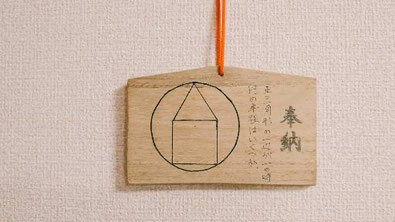 奉納
正三角形の一辺が一の時
円の半径はいくつか。